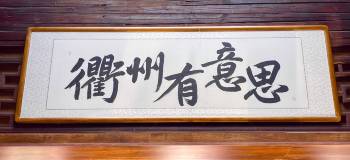 衢州有意思